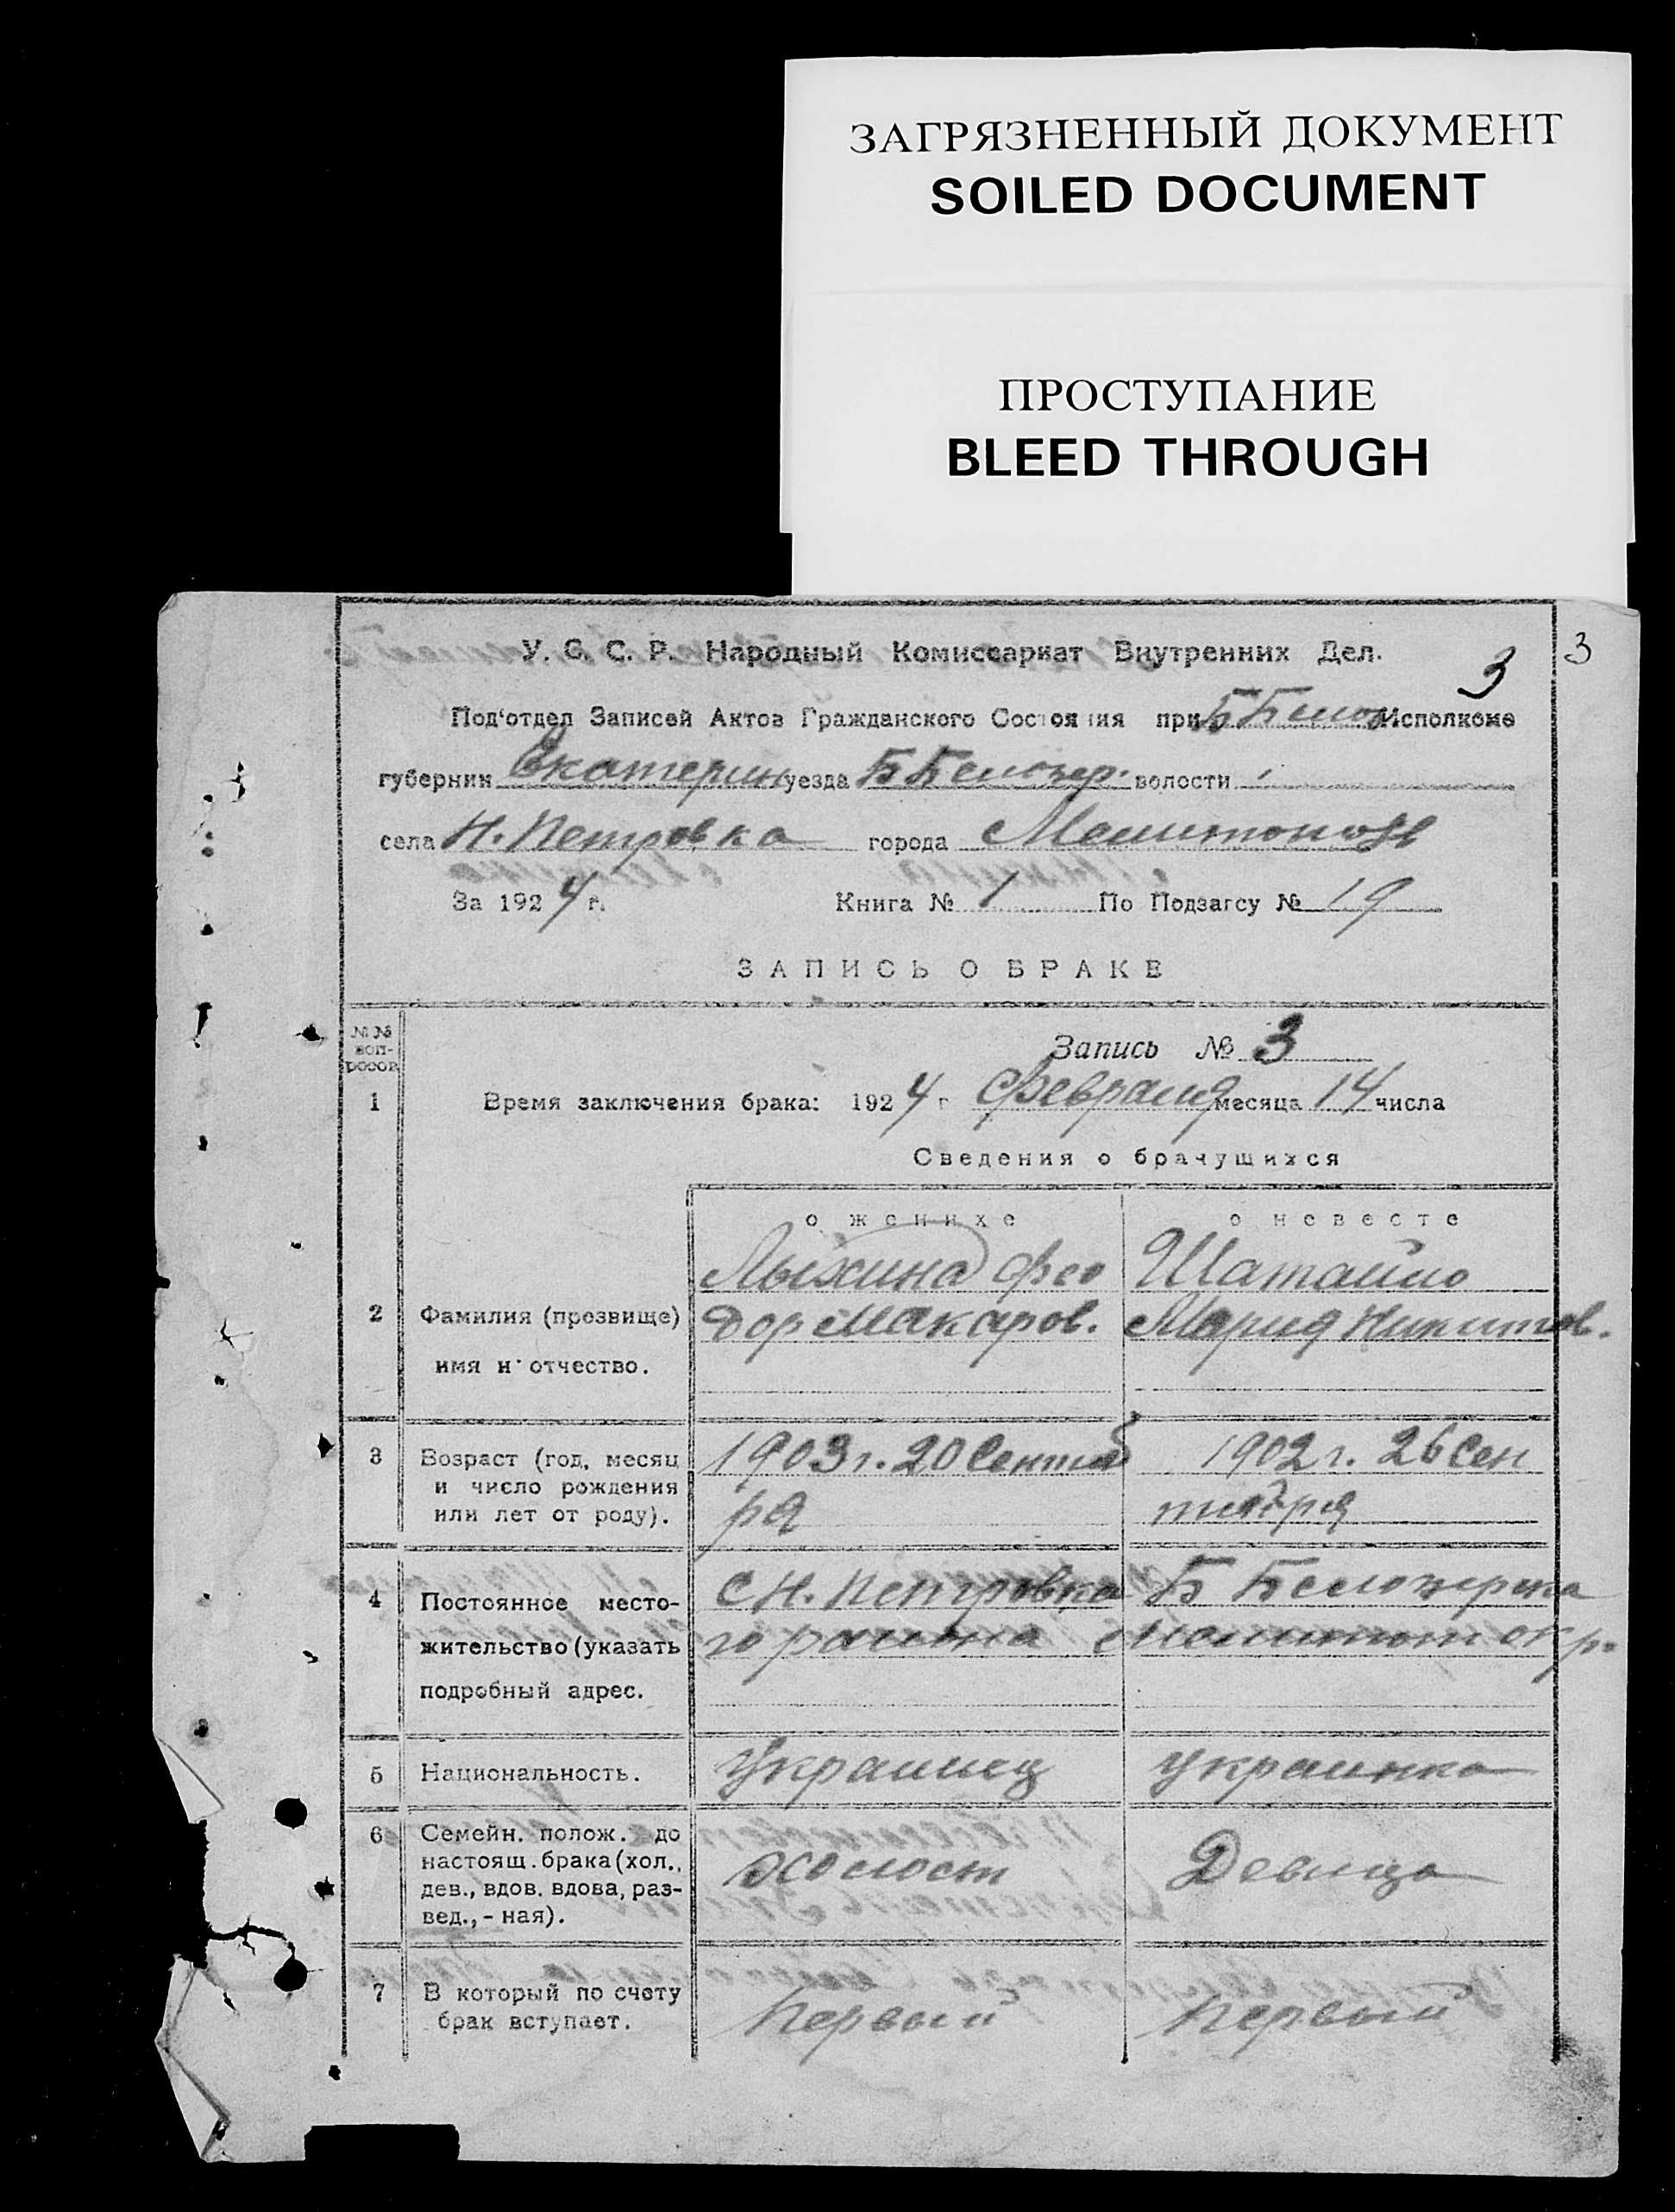 ЗАГРЯЗНЕННЫЙ ДОКУМЕНТ
SOILED DOCUMENT
ПРОСТУПАНИЕ
BLEED THROUGH
3
У. С. С. Р. Народный Комиссариат Внутренних Дел.
3
Под'отдел Записей Актов Гражданского Состояния при Б Белоз Исполкоме
губернии Екатерин уезда Б Белозер. волости
села Н. Петровка города
За 1924 г. Книга № 1 По Подзагсу № 19
ЗАПИСЬ О БРАКЕ
№№ воп-росов
Запись № 3
1 Время заключения брака: 1924 г Февраля месяца 14 числа
Сведения о брачущихся
о женихе о невесте
Лыхина Фео Шатайло
2 Фамилия (прозвище) дор Макаров. Мария Никитов.
имя и отчество.
3 Возраст (год, месяц 1903 г. 20 Сентяб 1902 г. 26 Сен
и число рождения
или лет от роду). ря тября
4 Постоянное место- С Н. Петровка Б Белозерка
жительство (указать го района Мелитоп окр.
подробный адрес.
5 Национальность. Украинец украинка
6 Семейн. полож. до
настоящ. брака (хол., холост Девица
дев., вдов. вдова, раз-
вед., - ная).
7 В который по счету Первый Первый
брак вступает.